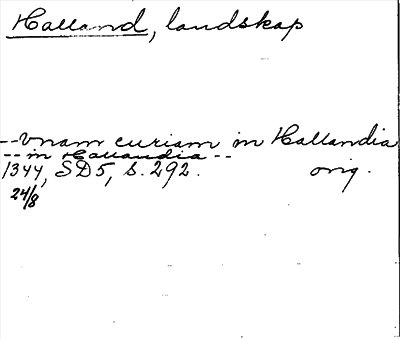 Halland, landskap
--vnam curiam in Hallandia
-- in Hallandia --
1344, SD5, s. 292. orig.
24/8